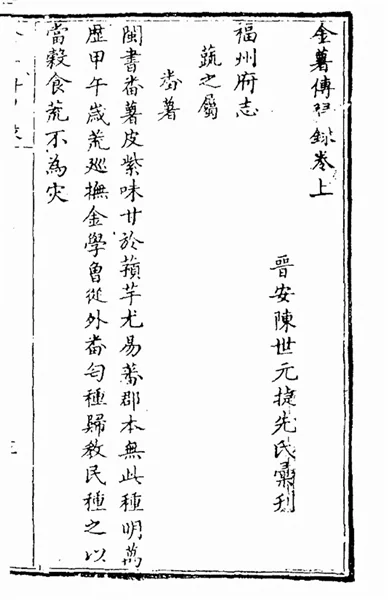 金薯傳習錄卷上
晉安陳世元捷先氏彙刊
福州府志
蔬之屬
畨薯
閩書畨薯皮紫味甘於蘋芋尤易蕃郡本無此種明萬
歷甲午歲荒巡撫金學魯從外畨匄種歸教民種之以
當穀食荒不為灾